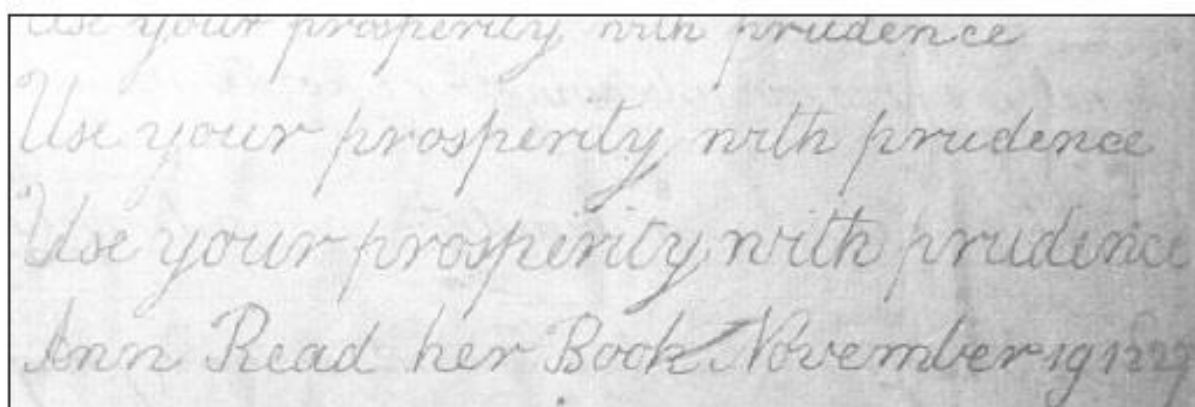 Use your prosperity with prudence
Use your prosperity with prudence
Use your prosperity with prudence
Ann Read her Book November 19